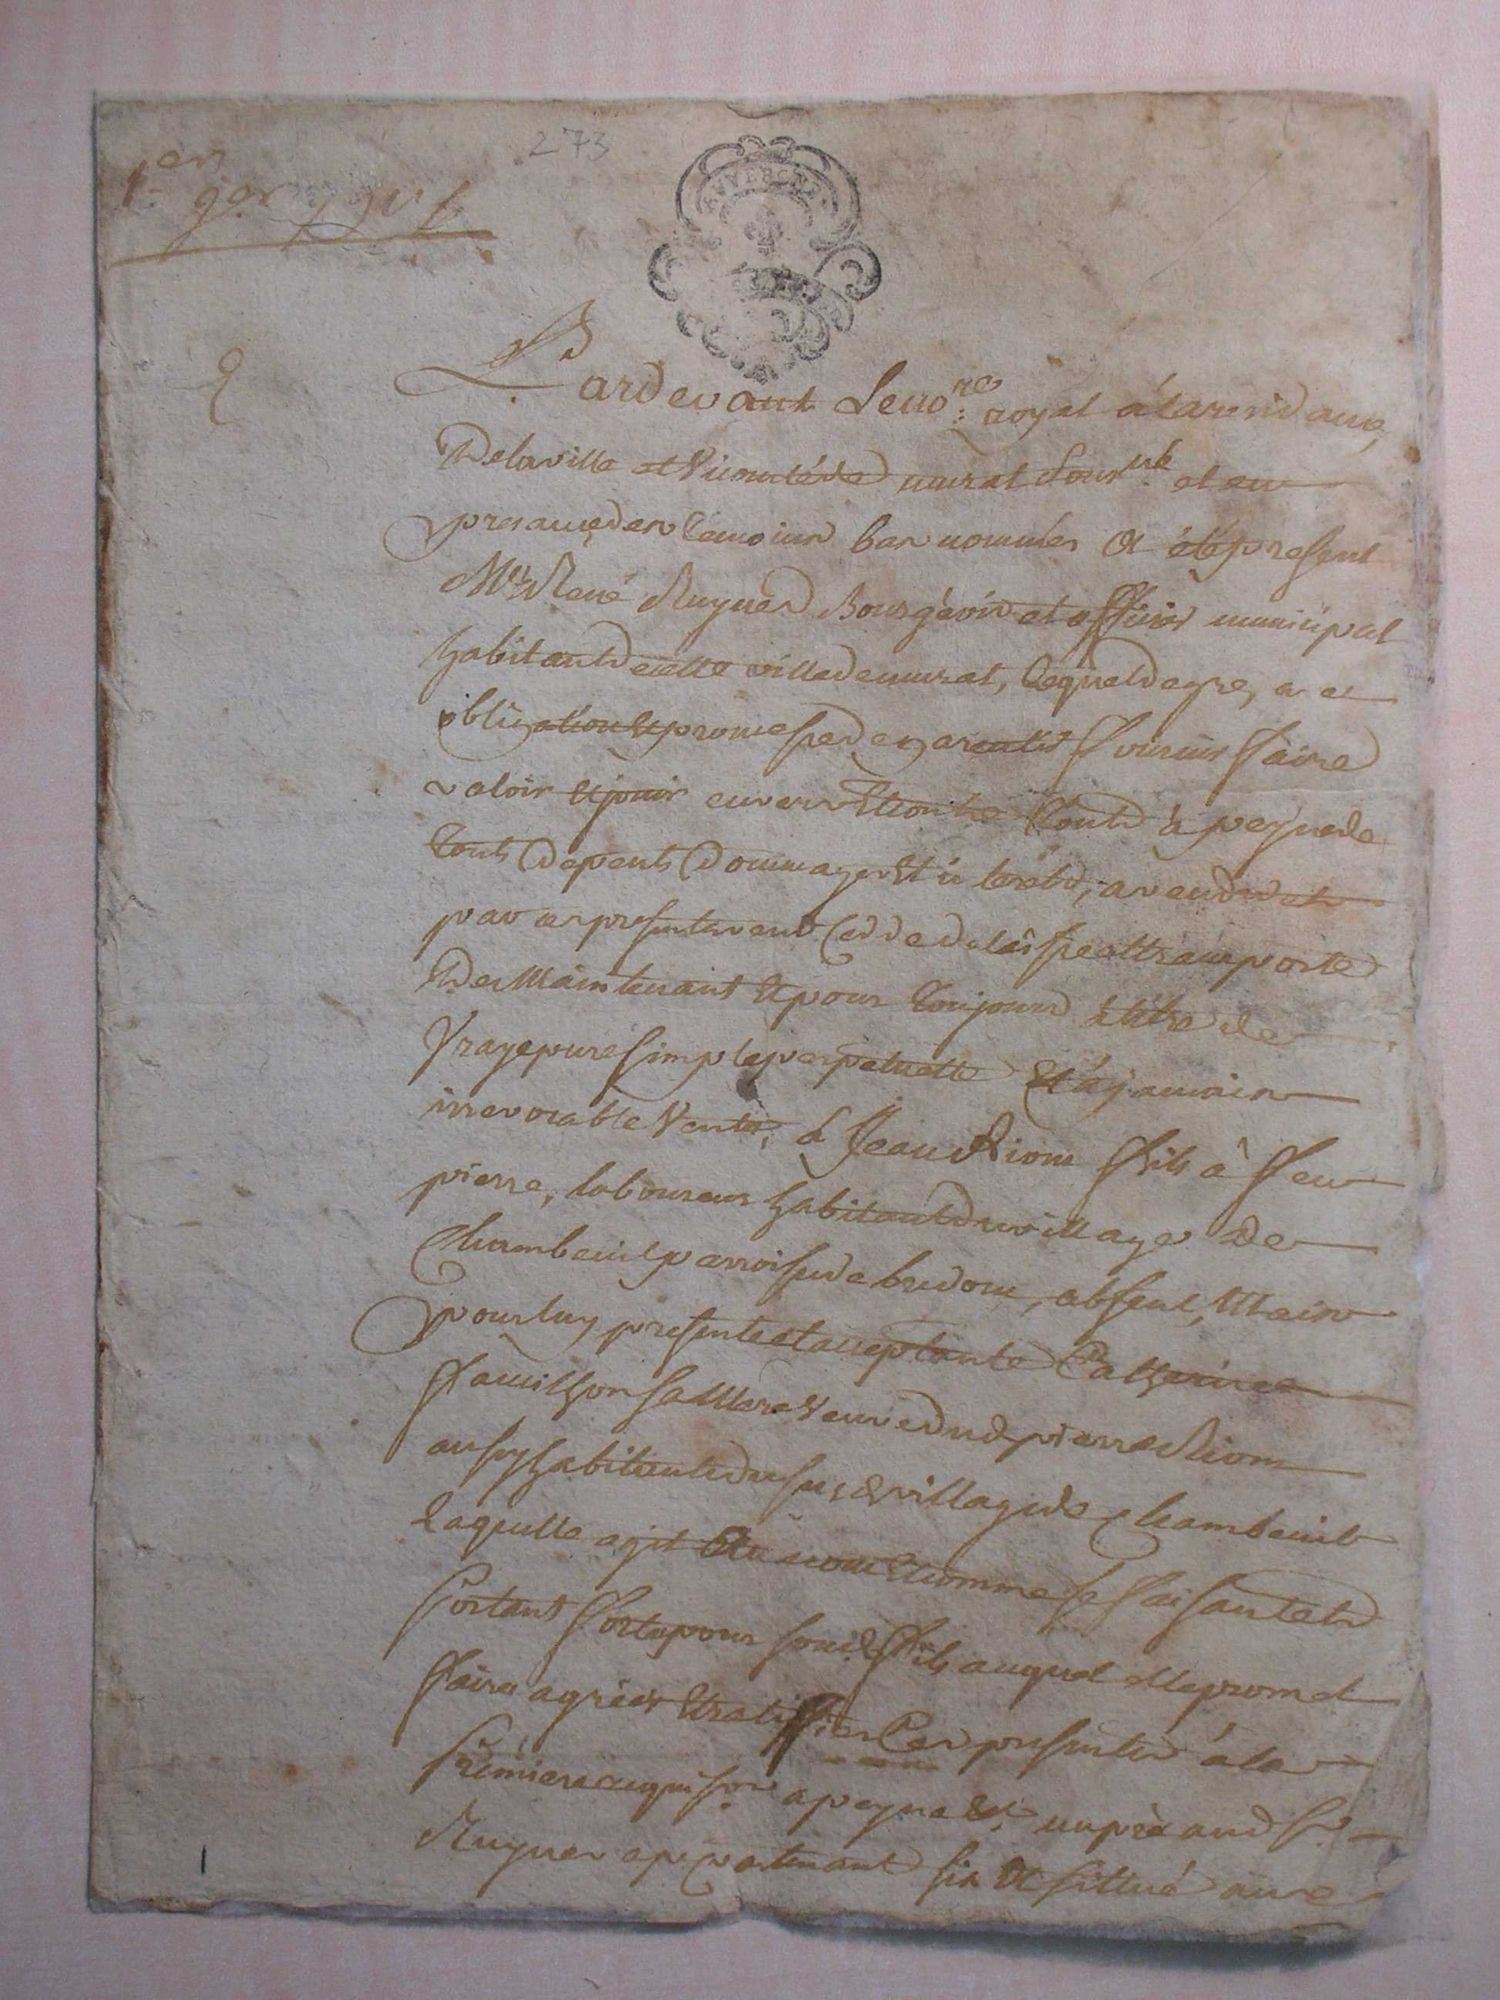 273
1er
AUVERGNE
Pardevant Le no.re royal á la residance,
De la ville et Vicomté de murat sousné et en
presance des temoins bas nommés a été present
Mre René Ruynes Bourgeois et officier municipal
habitant de cette ville de murat, lequel de gre, a ec
obligation et promesse de garentir fournir faire
valoir et jouir envers et contre touts à peyne de
touts depents dommages et interets, a vendu et
par ces presentes vent cedde delaisse et transporte
Des Maintenant et pour toujours á titre de
Vraye pure simple perpetuelle et á jamais
irrevocable Vente, á Jean Riom fils á feu
pierre, laboureur habitant du village De
Chambeuil parroisse de bredom, absent, Mais
pour luy presente et acceptante Catherine
famithon sa Mere Veuve dud. pierre Riom
aussy habitante du susd. village de Chambeuil
Laquelle agit au nom et comme se faisant et
portant forte pour sond. fils auquel elle promet
faire agréer et ratiffier Ces presentes á la
premiere requison a peyne &. un pré aud. Sr.
Ruynes apartenant sis et sittué aux